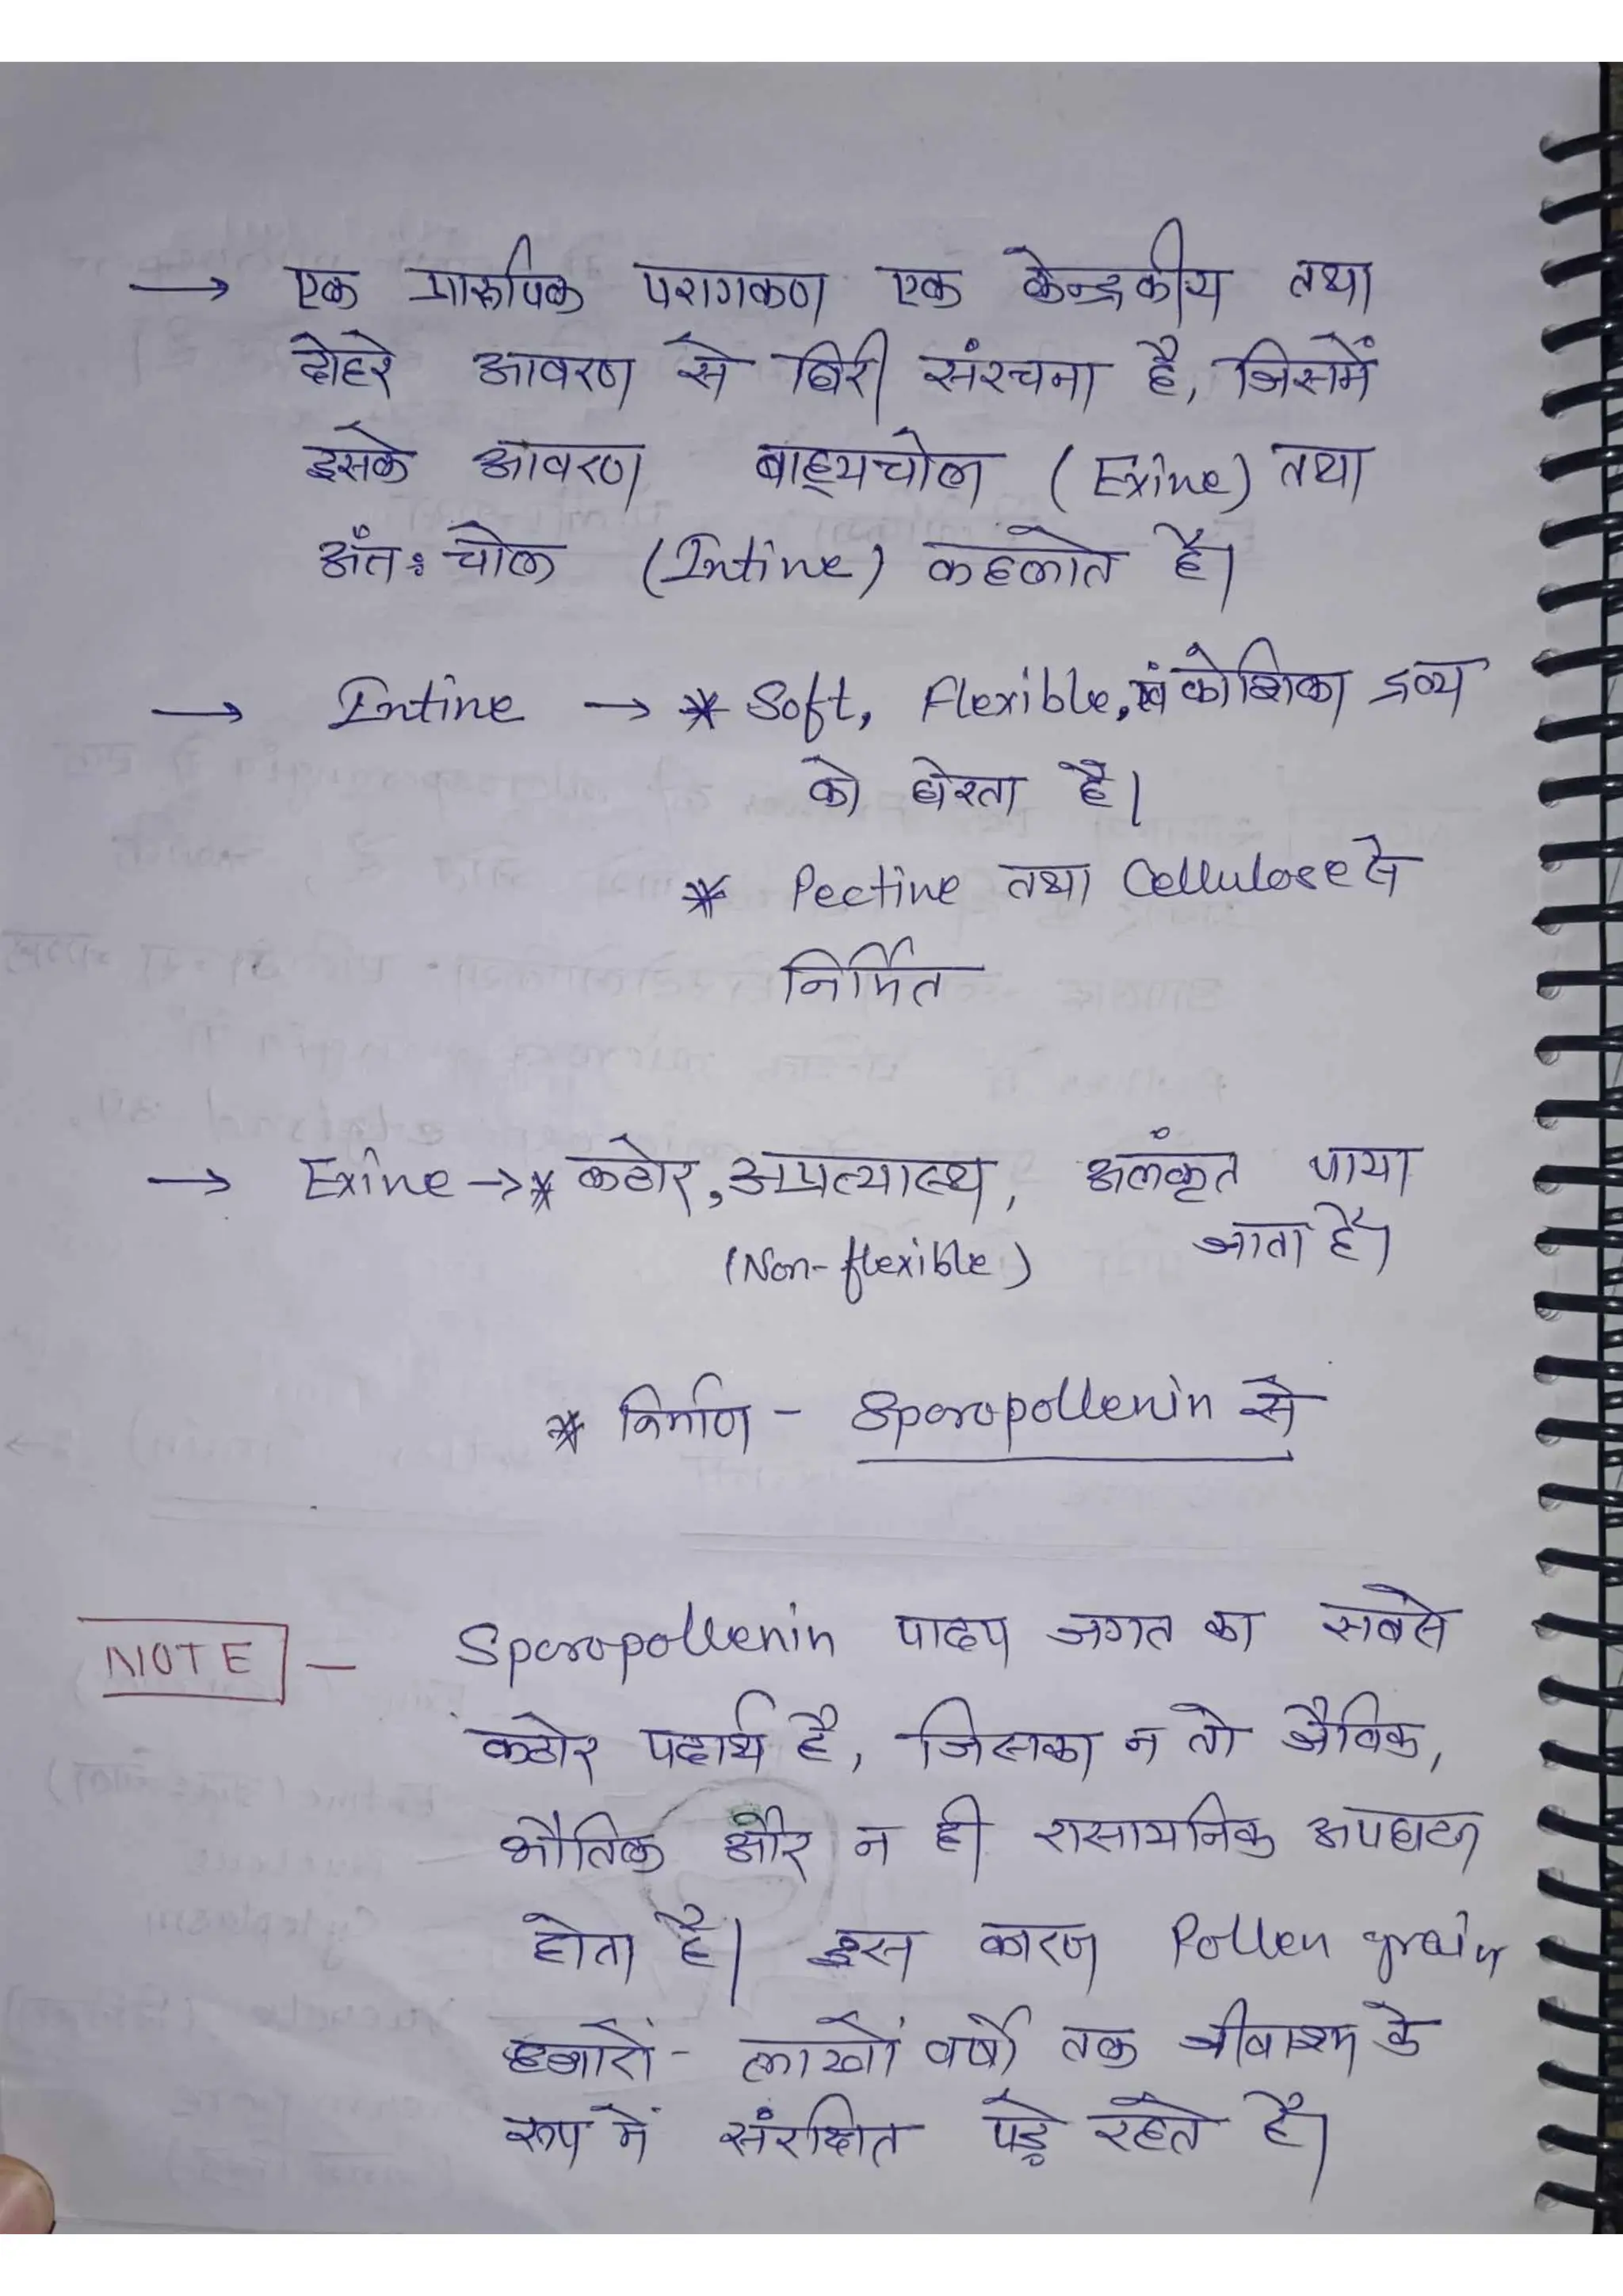 → एक प्रारूपिक परागकण एक केन्द्रकीय तथा
दोहरे आवरण से घिरी संरचना है, जिसमें
इसके आवरण बाह्यचोल (Exine) तथा
अंतः चोल (Intine) कहलाते है।
→ Intine → * Soft, Flexible, एवं कोशिका द्रव्य
को घेरता है।
* Pectine तथा Cellulose से
निर्मित
→ Exine → * कठोर, अप्रत्यास्थ, अलंकृत पाया
(Non-flexible) जाता है।
* निर्माण - Sporopollenin से
NOTE - Sporopollenin पादप जगत का सबसे
कठोर पदार्थ है, जिसका न तो जैविक,
भौतिक और न ही रासायनिक अपघटन
होता है। इस कारण Pollen grain
हजारों - लाखों वर्षो तक जीवाश्म के
रूप में संरक्षित पड़े रहते है।